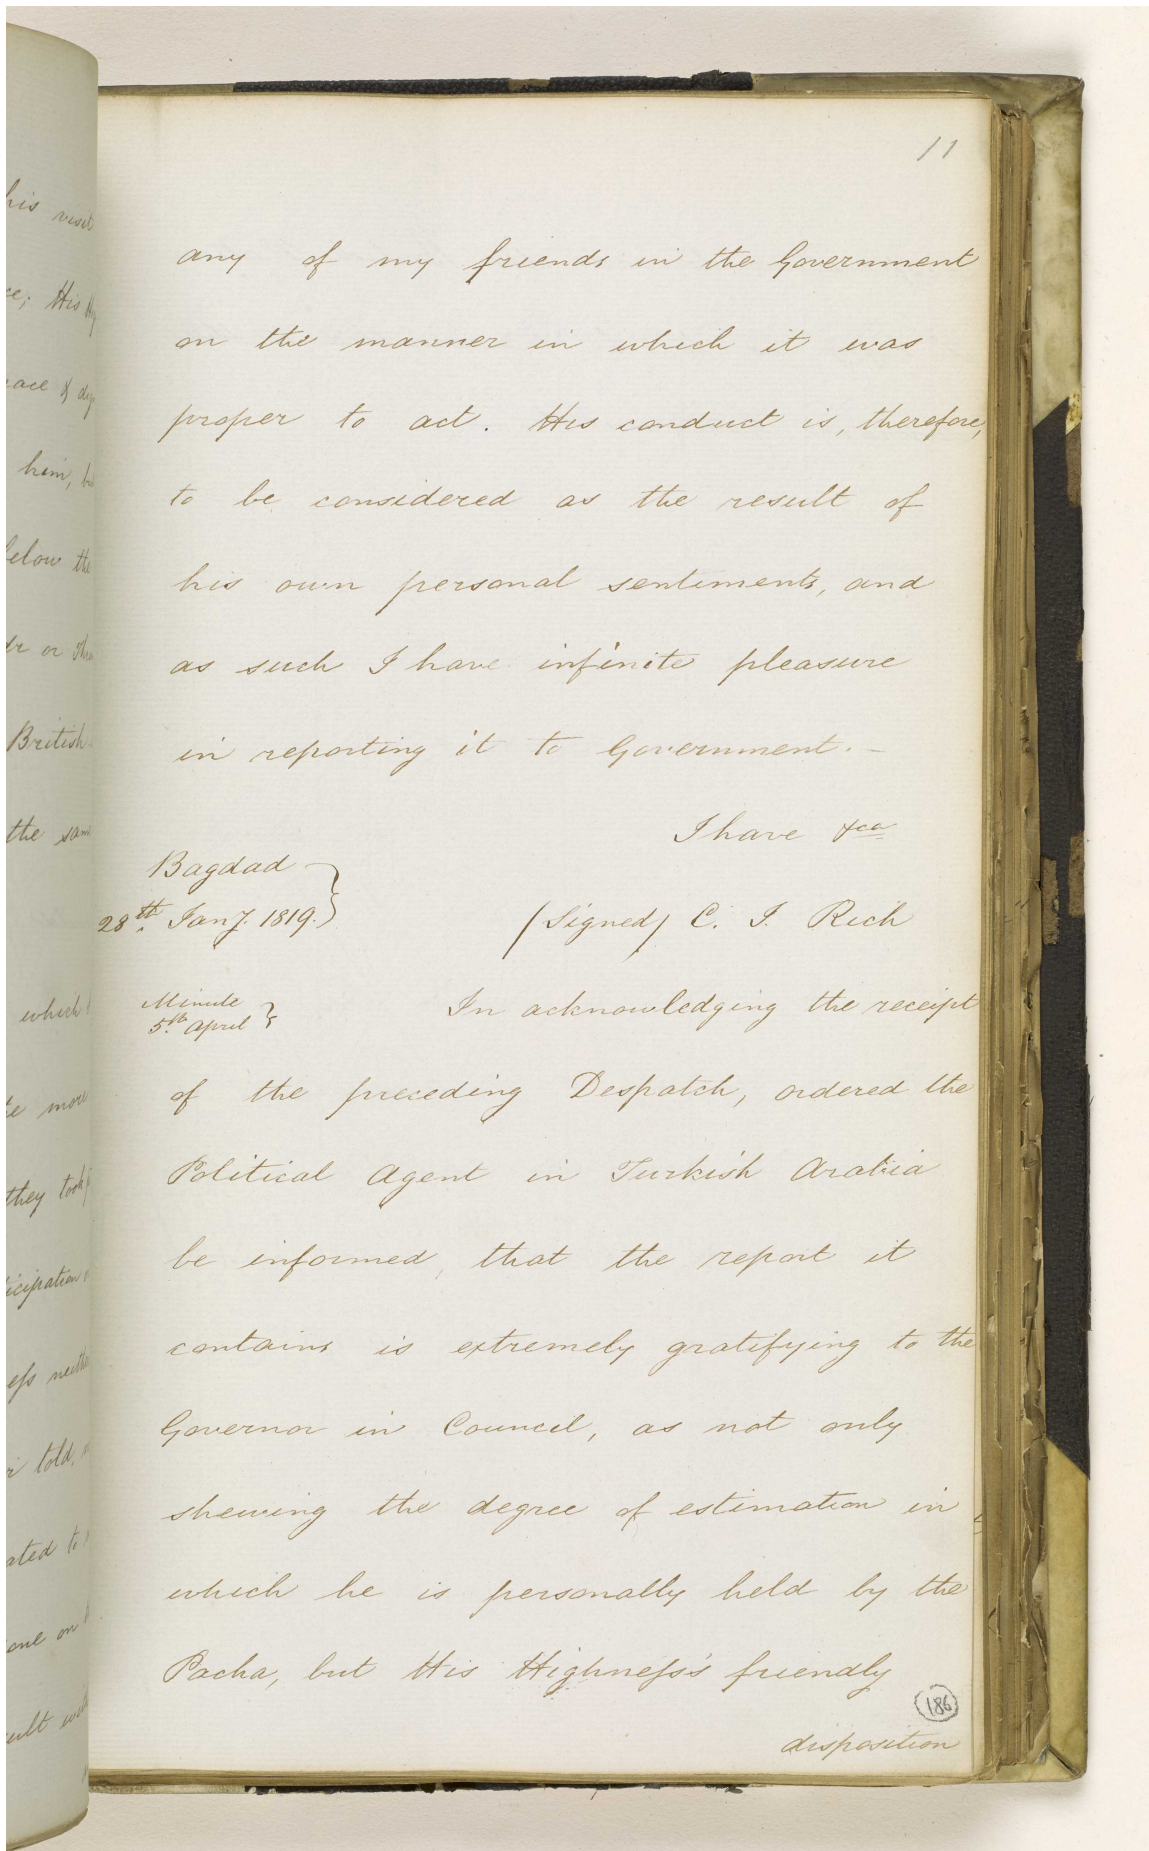 his visit
His
him,
below the
British
the same
which
more
they took
told,
one on
11
any of my friends in the Government
on the manner in which it was
proper to act. His conduct is, therefore,
to be considered as the result of
his own personal sentiments, and
as such I have infinite pleasure
in reporting it to Government. –
I have &ca
Bagdad
28th. Jany. 1819.
(Signed) C. J. Rich
Minute
5th. April
In acknowledging the receipt
of the preceding Despatch, ordered the
Political Agent in Turkish Arabia
be informed, that the report it
contains is extremely gratifying to the
Governor in Council, as not only
shewing the degree of estimation in
which he is personally held by the
Pacha, but His Highness's friendly
186
disposition